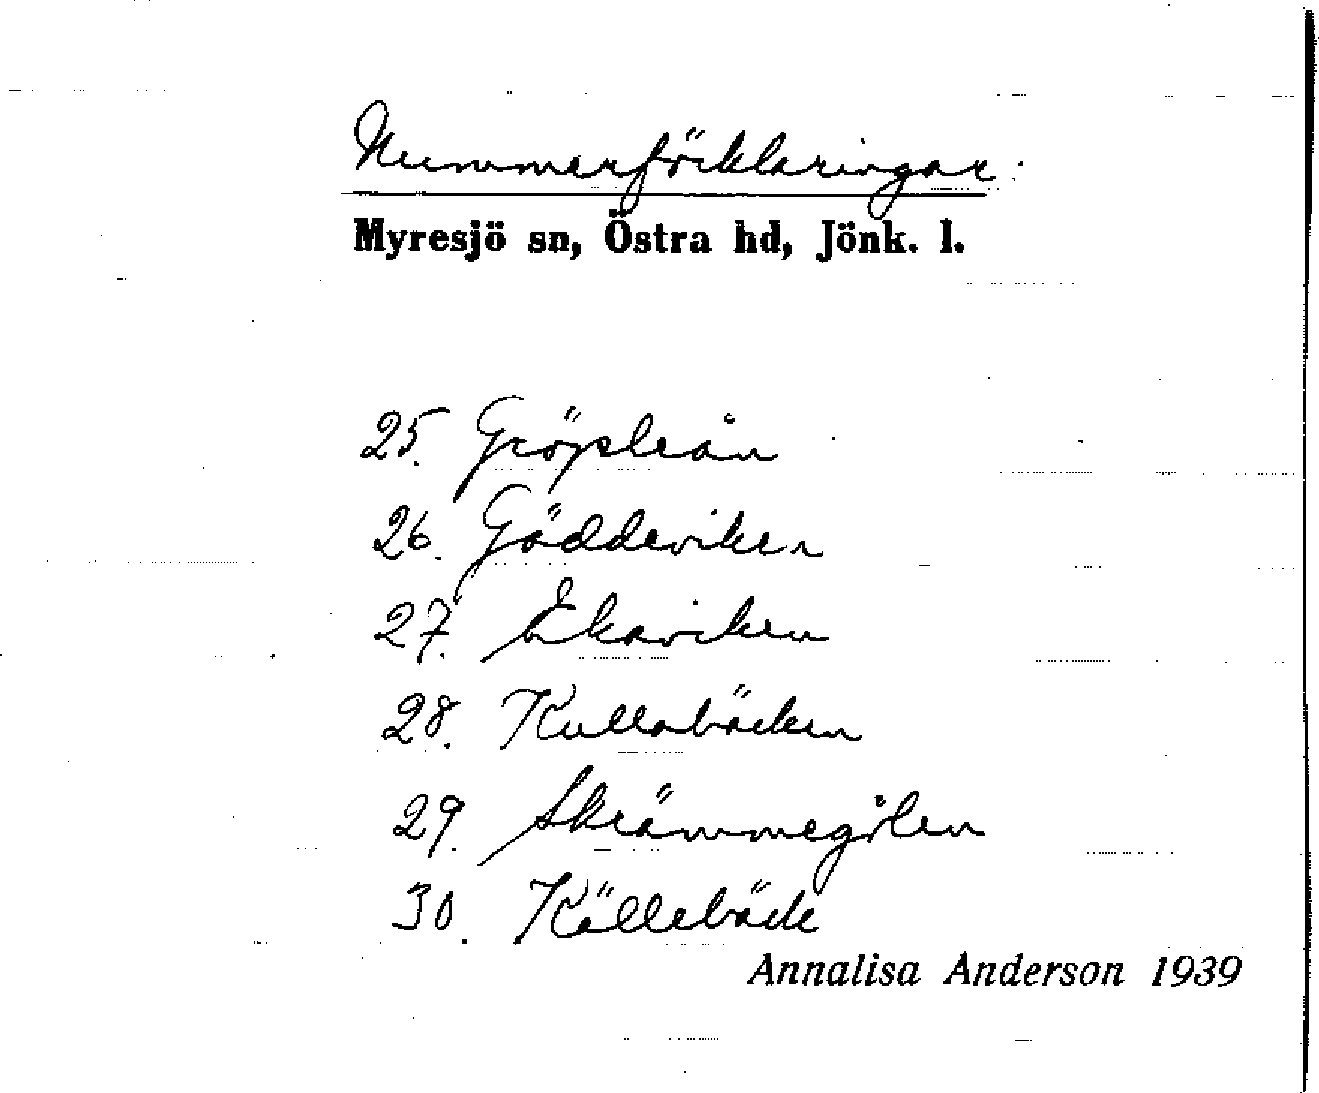 Nummerförklaringar.
Myresjö sn, Östra hd, Jönk. l.
25. Gröpleån
26. Gäddeviken
27. Ekaviken
28. Kullabäcken
29. Skrämmegölen
30. Källebäck
Annalisa Anderson 1939